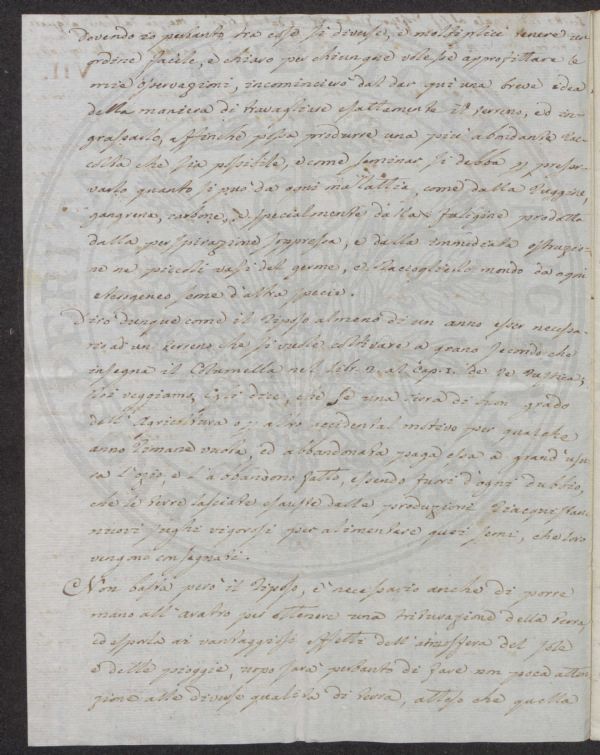 Dovendo io pertanto tra esse sì diverse, e moltiplici tenere un
ordine facile, e chiaro per chiunque volesse approfittare le
mie osservazioni, incomincierò dal dar qui una breve idea
della maniera di travagliare esattamente il terreno, ed in-
grassarlo, affinchè possa produrre una più abondante rac-
colta che sia possibile, e come seminar si debba p preser-
varlo quanto si può da ogni malattia, come dalla ruggine,
gangrena, carbone, e specialmente dalla fuligine prodotta
dalla perspirazione soppressa, e dalla immediata ostruzio-
ne ne piccoli vasi del germe, e raccoglierlo mondo da ogni
eterogeneo seme d'altra specie.
Dirò dunque come il riposo almeno di un anno esser necessa-
rio ad un terreno che si vuole coltivare a grano secondo che
insegna il Columella nel Libr. 2. al Cap. 1. de Re Rustica,
noi veggiamo, egli dice, che se una terra di buon grado
dell'Agricoltura o p altro accidental motivo per qualche
anno rimane vuota, ed abbandonata paga essa a grand'usu-
ra l'ozio, e l'abbandono fatto, essendo fuori d'ogni dubbio,
che le terre lasciate esauste dalle produzioni riacquistan
nuovi sughi vigorosi per alimentare quei semi, che loro
vengono consegnati.
Non basta però il riposo, è necessario anche di porre
mano all'aratro per ottenere una triturazione della terra,
ed esporla ai vantaggiosi effetti dell'atmosfera del sole
e delle pioggie, uopo sarà pertanto di fare non poca atten-
zione alle diverse qualità di terra, atteso che quella